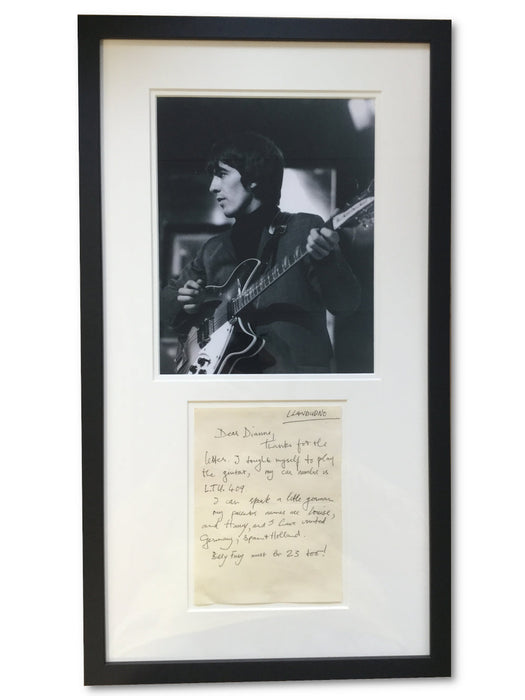 LLANDUDNO
Dear Dianne,
Thanks for the
letter. I taught myself to play
the guitar, my car number is
LTU. 409
I can speak a little german
my parents names are Louise,
and Harry, and I have visited
Germany, Spain + Holland.
Billy Fury must be 23 too!